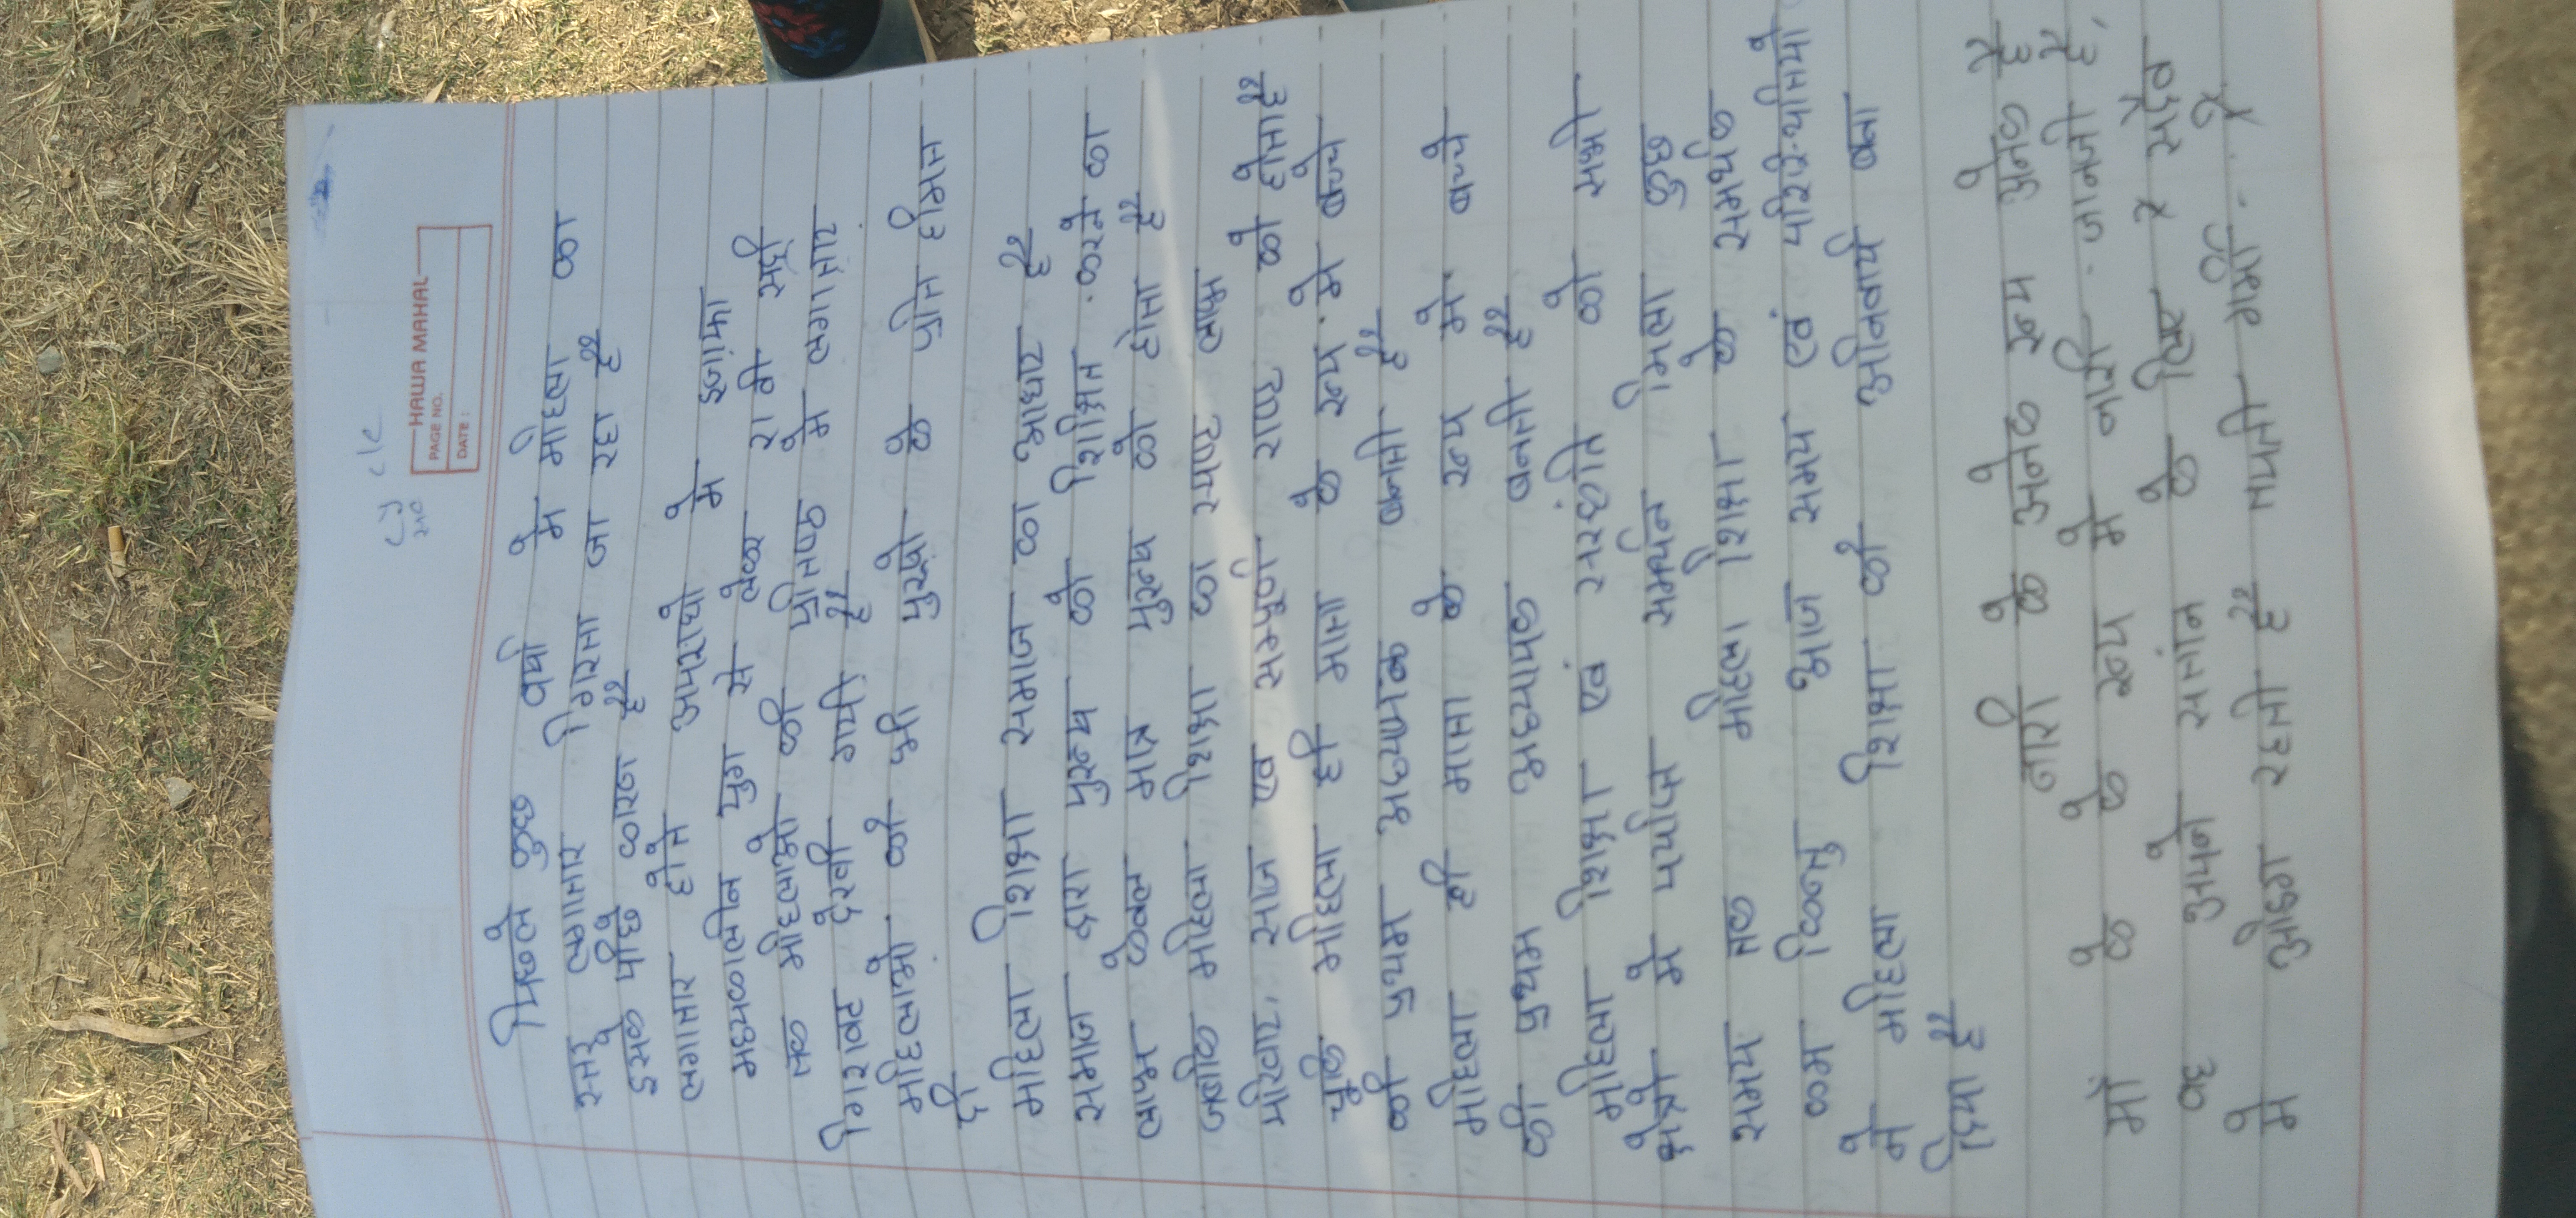 HAWA MAHAL
PAGE NO.
DATE :
पिछले कुछ वर्षो मे महिला का
स्तर लगातार गिरता जा रहा है
इसके पीछे कारण है
लगातार होते अपराधो मे इजाफा
मध्यकालीन युग से लेकर सदी
तक महिलाओ की प्रतिष्ठ मे लगातार
गिरावट देखी गयी है
महिलाओ को भी पुरुषो के प्रति
महिला शिक्षा समाज का आधार है
समाज द्वारा पुरुष को शिक्षित करने का
लाभ केवल मात्र पुरुष को होता है
जबकि महिला शिक्षा का स्पष्ट लाभ
समाज एव सम्पूर्ण राष्ट को होता है
चूकि महिला ही माता के रूप मे बच्चे
की प्रथम अध्यापक बनती है
महिला ही माता के रूप मे बच्चे
की प्रथम अध्यापक बनती है
महिला शिक्षा एवं संस्कृति को सभी
क्षेत्रो मे पर्याप्त समर्थन मिला कुछ
समय तक महिला शिक्षा के समर्थक
कम किन्तु आज समय एवं परिस्थितियो
ने महिला शिक्षा को अनिवार्य बना
दिया है
नारी के अनेक रूप अनेक है
माँ के रूप मे नारी जननी है,
वह अपने संतान के लिए सदैव
मे अडिग रहती है तपती गर्मी